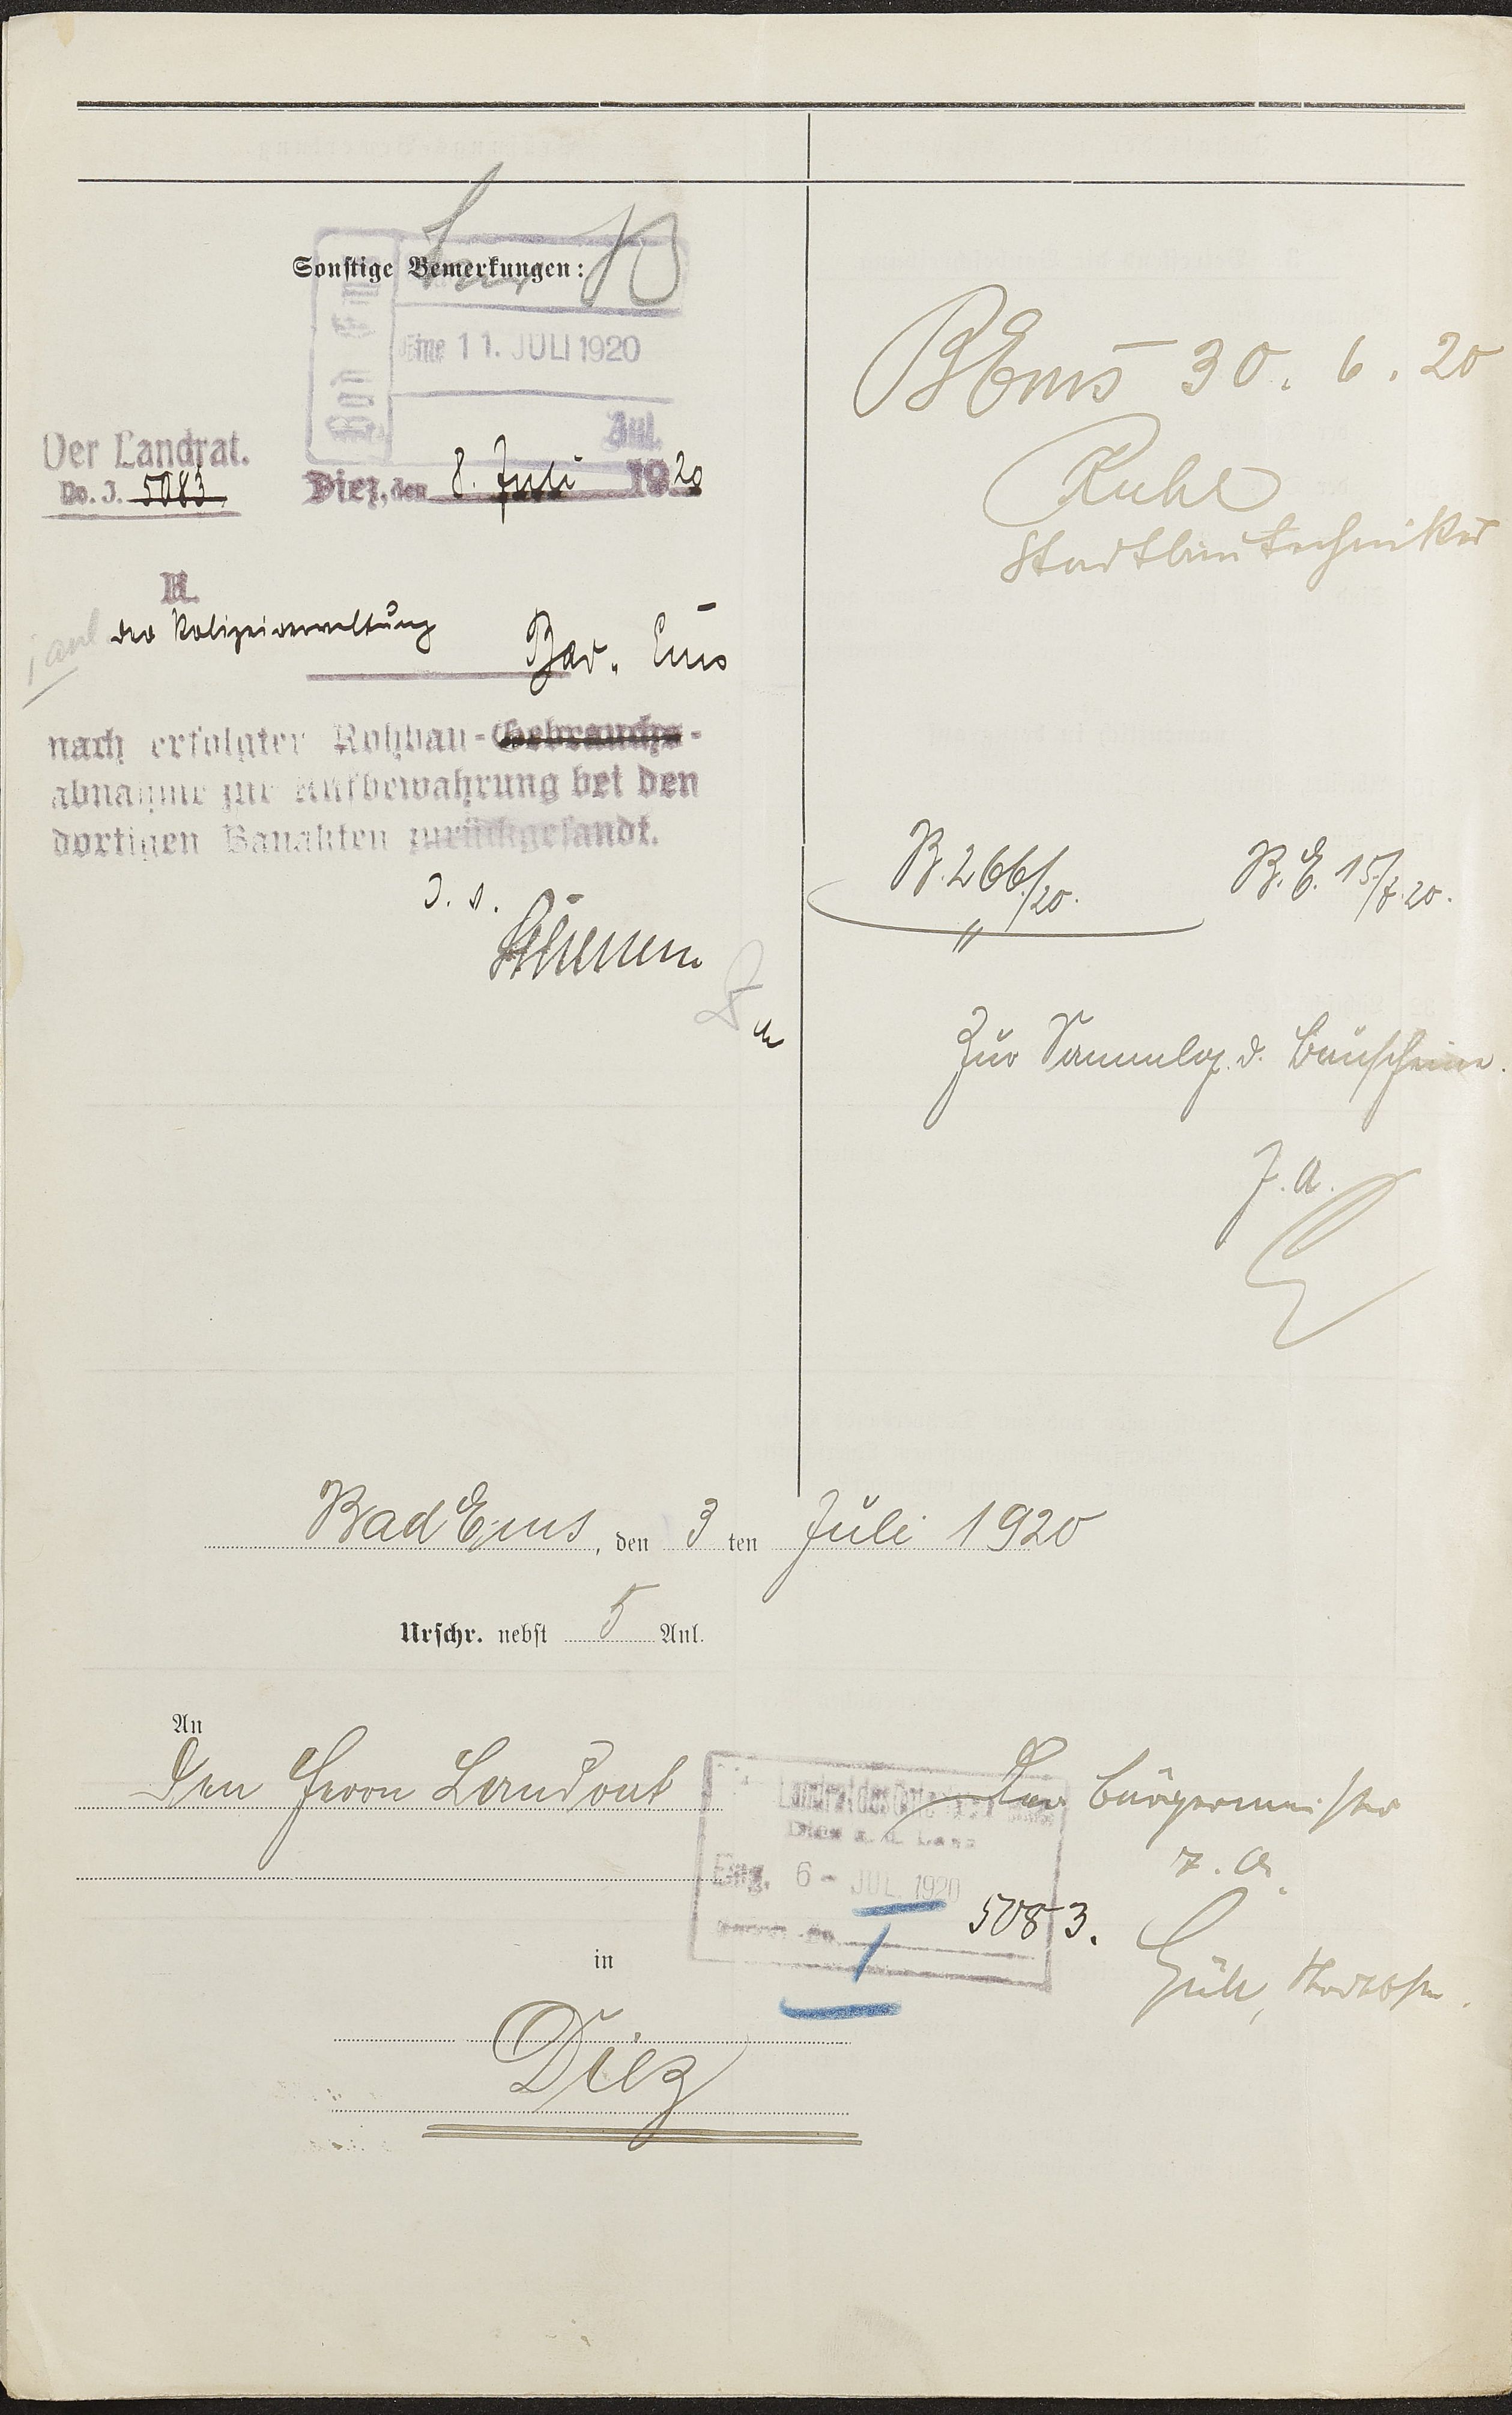 Sonstige Bemerkungen:
Bad Ems
Eing. 11. JULI 1920
Anl.
Der Landrat.
No. J. 5083.
Diez, den 8. Juli 1920
II.
der Polizeiverwaltung
Bad-Ems
nach erfolgter Rohbau-Gebrauchs-
abnahme zur Aufbewahrung bei den
dortigen Bauakten zurückgesandt.
J. V.
BEms 30. 6. 20
Ruhl
Stadtbautechniker
B. 266/20.
B. E. 15/7. 20.
Zur Sammlg. d. Bauscheine.
J. A.
Bad Ems, den 3 ten Juli 1920
Urschr. nebst 5 Anl.
An
den Herrn Landrat
in
Diez
Landrat des
Diez a. d. Lahn
Eing. 6 - JUL. 1920
5083.
I
Der Bürgermeister
J. A.